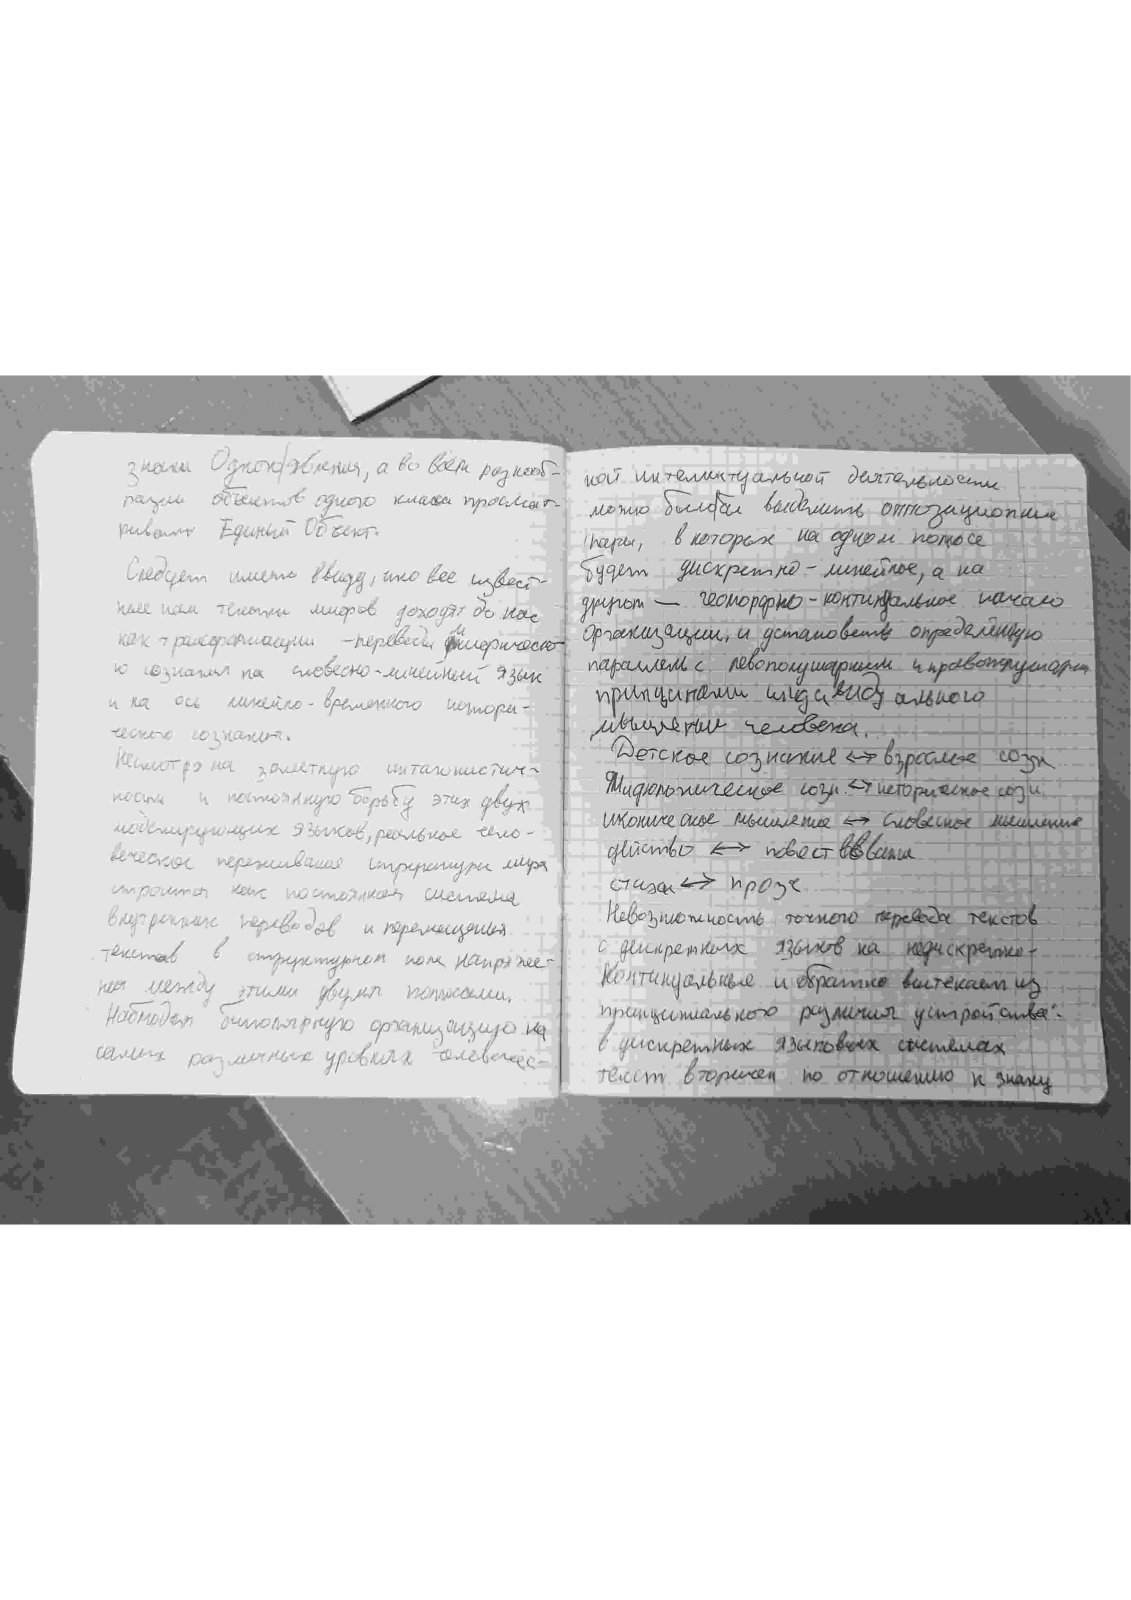 знаки Одного явления, а во всём разнооб-
разии объектов одного класса просмат-
ривали Единый Объект.
Следует иметь ввиду, что все извест-
ные нам тексты мифов доходят до нас
как трансформации - переводы мифическо-
го сознания на словесно-линейный язык
и на ось линейно-временного истори-
ческого сознания.
Несмотря на заметную антагонистич-
ность и постоянную борьбу этих двух
моделирующих языков, реальное чело-
веческое переживание структуры мира
строится как постоянная система
внутренних переводов и перемещения
текстов в структурном поле напряже-
ния между этими двумя полюсами.
Наблюдая биполярную организацию на
самых различных уровнях человечес-
кой интеллектуальной деятельности
можно было бы выделить оппозиционные
пары, в которых на одном полюсе
будет дискретно-линейное, а на
другом — гомоморфно-континуальное начало
организации, и установить определённую
параллель с левополушарным и правополушарным
принципами индивидуального
мышления человека.
Детское сознание ↔ взрослое созн.
Мифологическое созн. ↔ историческое созн.
иконическое мышление ↔ словесное мышление
действо ↔ повествование
стихи ↔ проза
Невозможность точного перевода текстов
с дискретных языков на недискретно-
континуальные и обратно вытекает из
принципиального различия устройства:
в дискретных языковых системах
текст вторичен по отношению к знаку